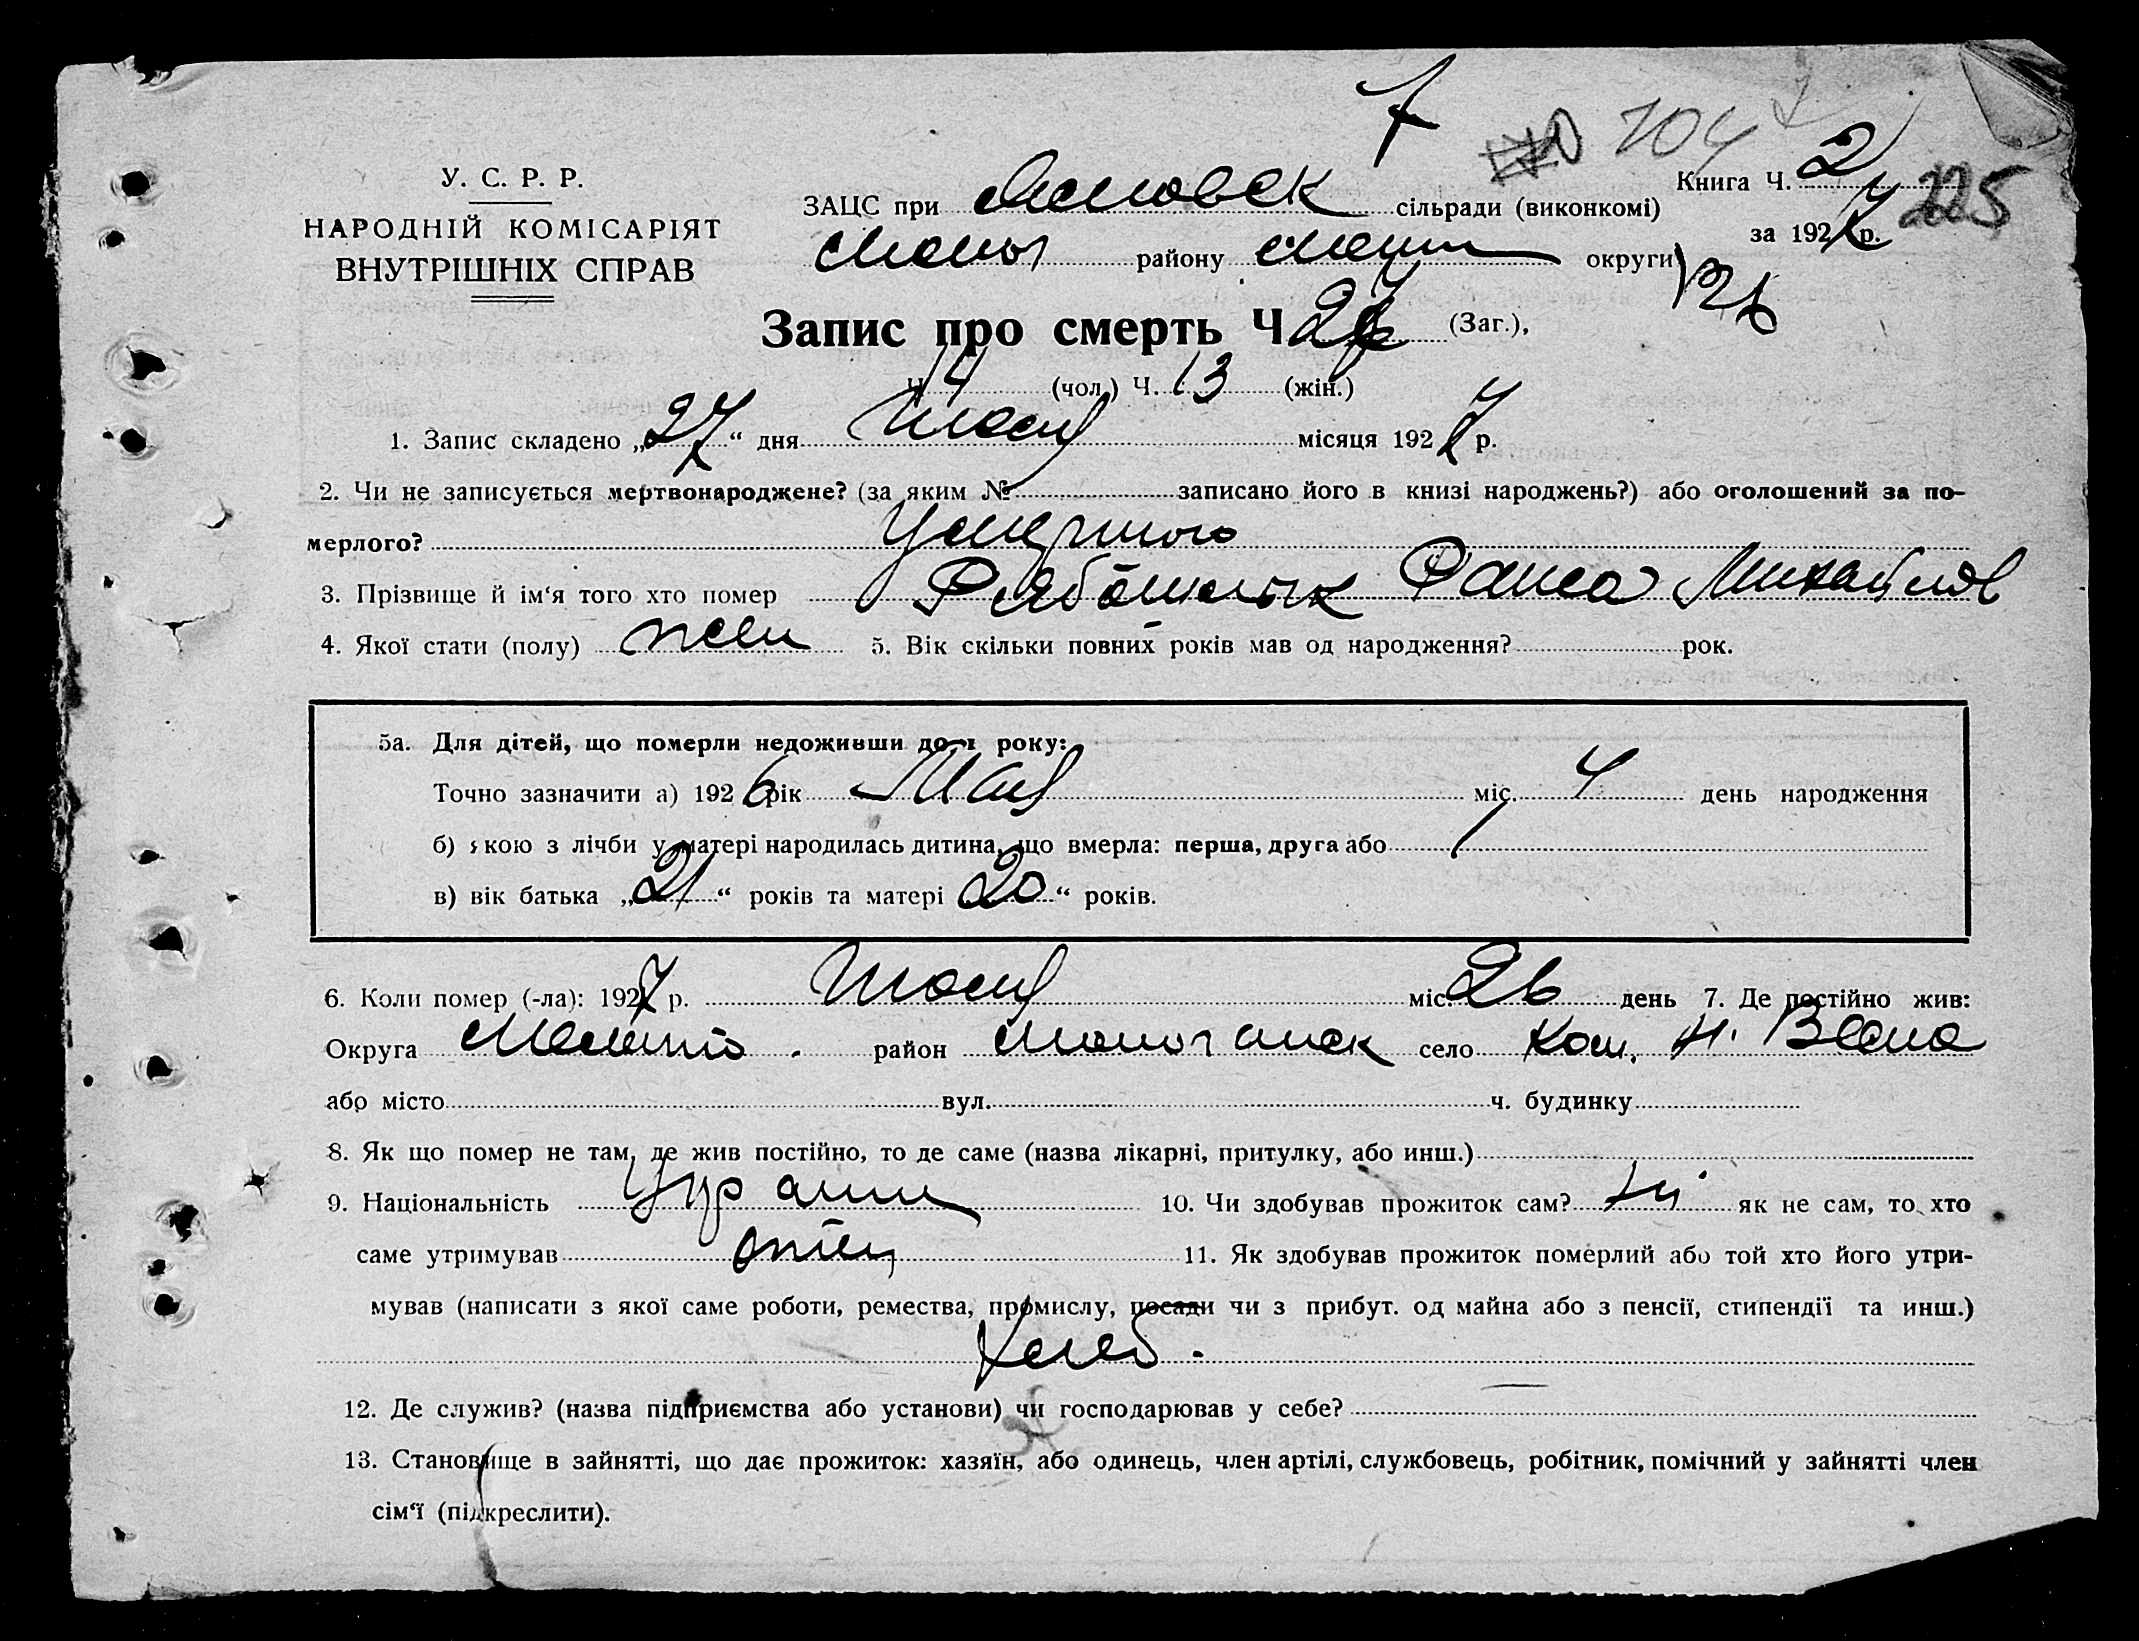 7
704
У. С. Р. Р.
НАРОДНІЙ КОМІСАРІЯТ
ВНУТРІШНІХ СПРАВ
Книга Ч. 2
225
за 1927 р.
ЗАЦС при сільради (виконкомі)
району округи
Запис про смерть Ч (Заг.),
Ч 14 (чол.) Ч. 13 (жін.)
1. Запис складено „27“ дня місяця 1927 р.
2. Чи не записується мертвонароджене? (за яким № записано його в книзі народжень?) або оголошений за по-
мерлого? Умершого
3. Прізвище й ім'я того хто помер Раиса Михайлов
4. Якої стати (полу) жен 5. Вік скільки повних років мав од народження? рок.
5а. Для дітей, що померли недоживши до 1 року:
Точно зазначити а) 1926 рік Май міс. 4 день народження
б) якою з лічби у матері народилась дитина, що вмерла: перша, друга або 1
в) вік батька „21“ років та матері „20“ років.
6. Коли помер (-ла): 1927 р. міс. 26 день 7. Де постійно жив:
Округа район село Н. Весела
або місто вул. ч. будинку
8. Як що помер не там, де жив постійно, то де саме (назва лікарні, притулку, або инш.)
9. Національність 10. Чи здобував прожиток сам? ні як не сам, то хто
саме утримував отец 11. Як здобував прожиток померлий або той хто його утри-
мував (написати з якої саме роботи, ремества, промислу, посади чи з прибут. од майна або з пенсії, стипендії та инш.)
хлеб.
12. Де служив? (назва підприємства або установи) чи господарював у себе?
13. Становище в зайнятті, що дає прожиток: хазяїн, або одинець, член артілі, службовець, робітник, помічний у зайнятті член
сім'ї (підкреслити).